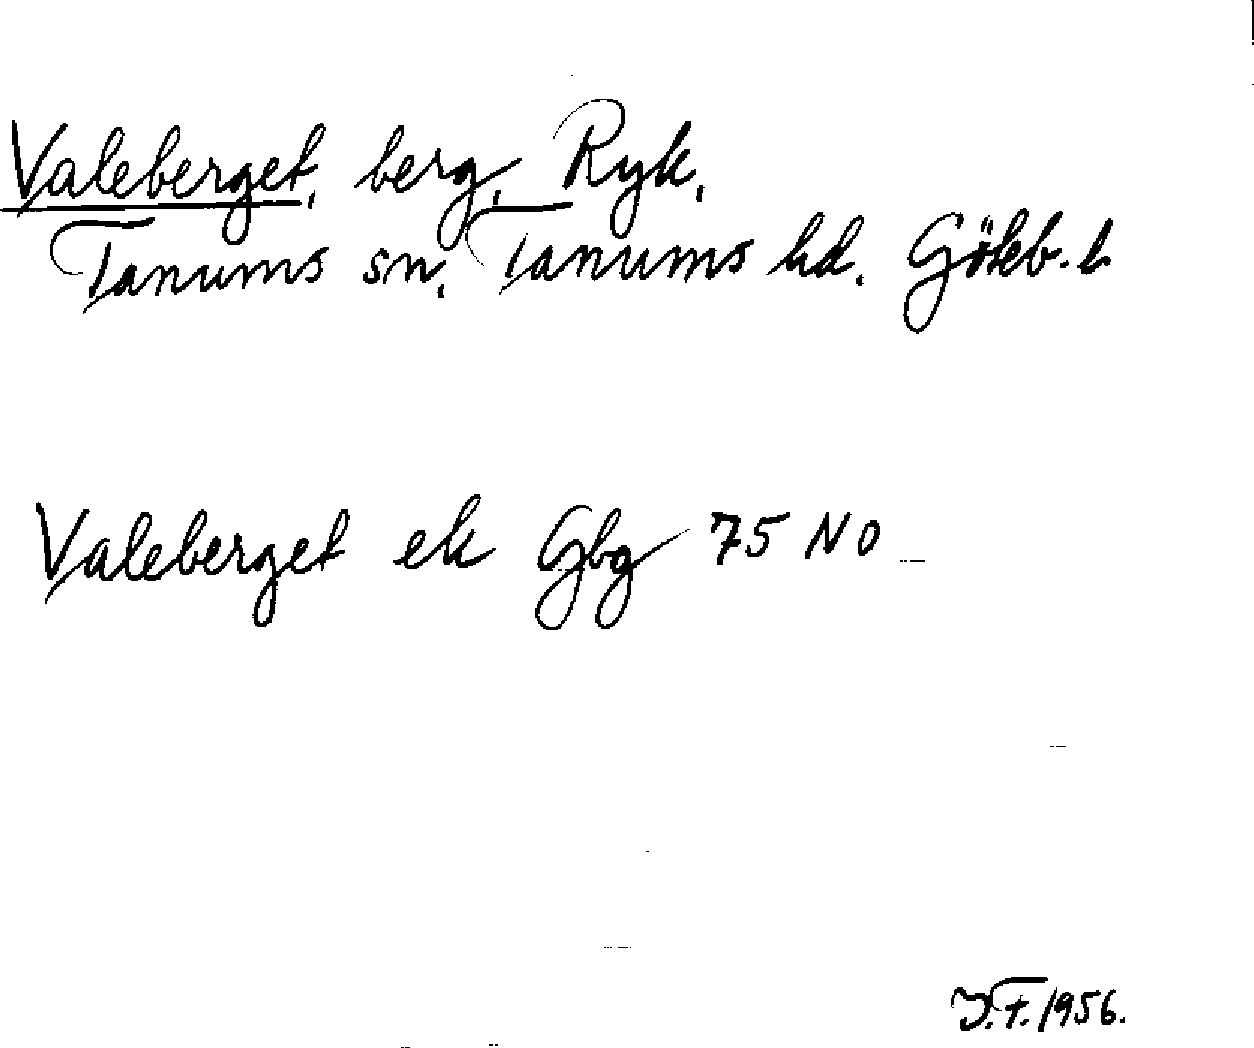 Valeberget, berg, Ryk,
Tanums sn, Tanums hd. Göteb. l.
Valeberget ek Gbg 75 NO
1956.